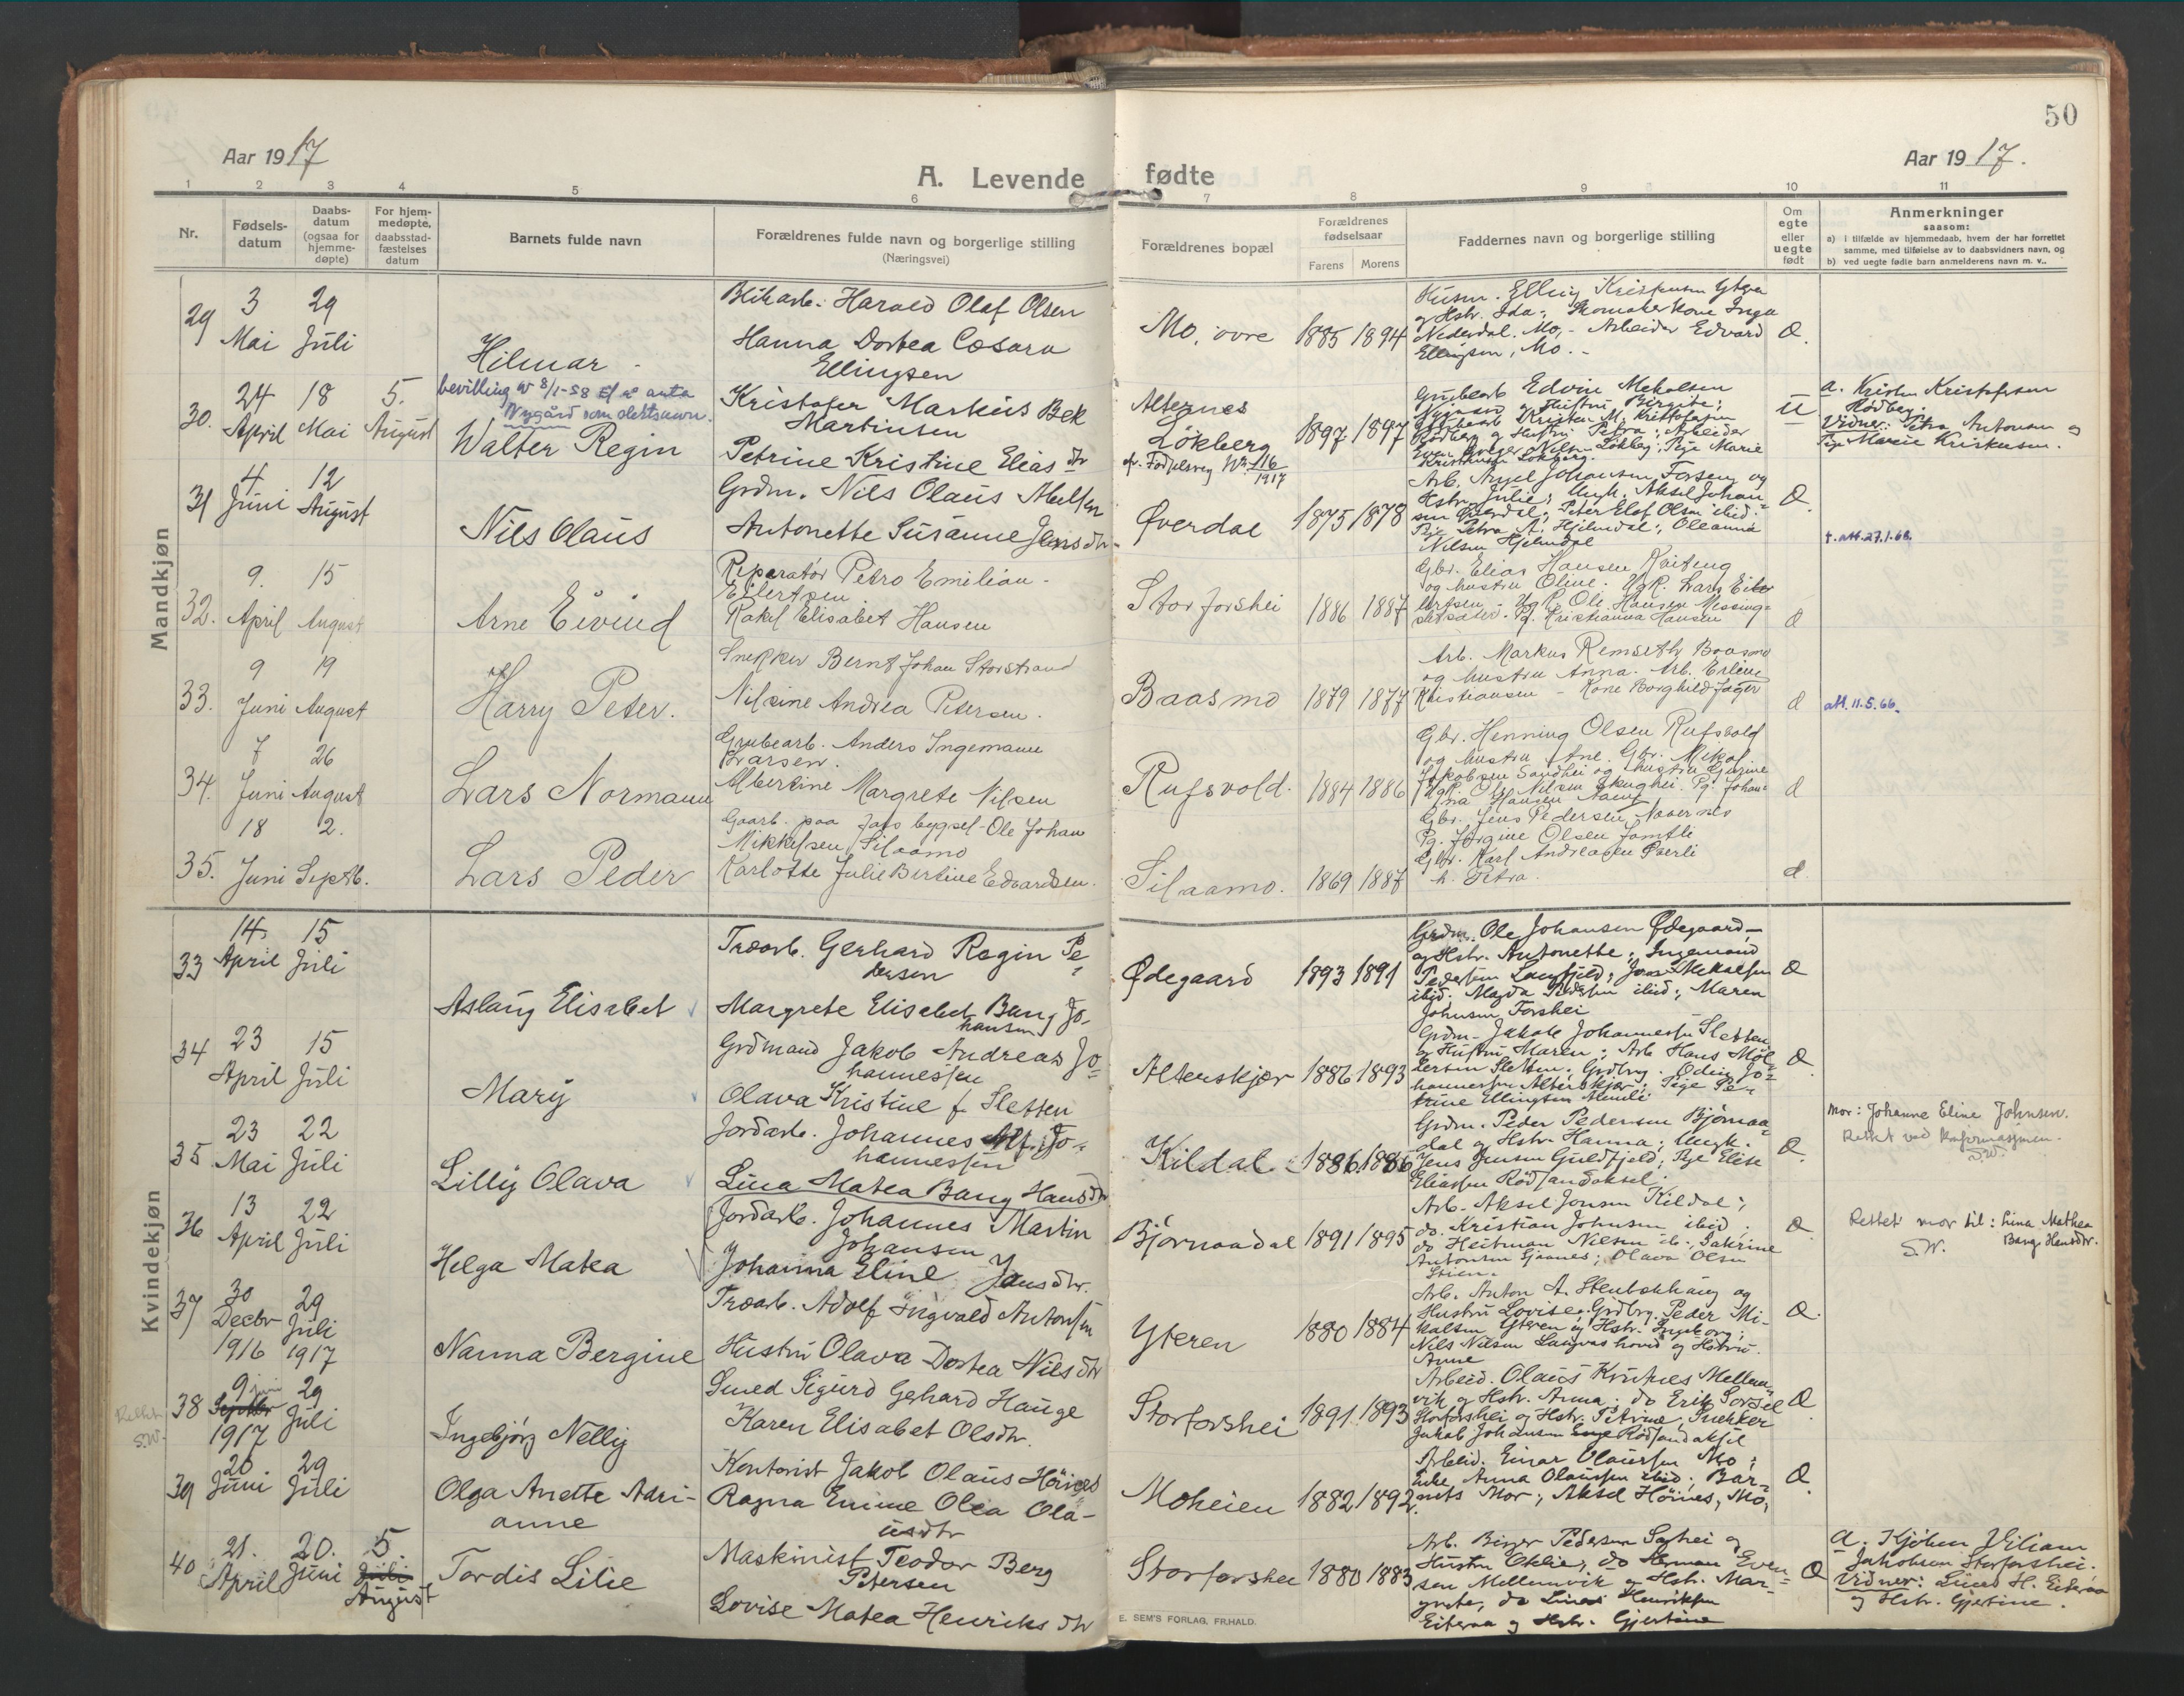 50
Aar 1917
A. Levende fødte
Aar 1917.
1 2 3 4 5 6 7 8 9 10 11
Nr.
Fødsels-
datum
Daabs-
datum
(ogsaa for
hjemme-
døpte)
For hjem-
medøpte,
daabsstad-
fæstelses
datum
Barnets fulde navn
Forældrenes fulde navn og borgerlige stilling
(Næringsvei)
Forældrenes bopæl
Forældrenes
fødselsaar
Farens Morens
Faddernes navn og borgerlige stilling
Om
egte
eller
uegte
født
Anmerkninger
saasom:
a) i tilfælde av hjemmedaab, hvem der har forrettet
samme, med tilføielse av to daabsvidners navn, og
b) ved uegte fødte barn anmelderens navn m. v..
Mandkjøn
29
3 Mai
29 Juli
Hilmar
Harald Olaf Olsen
Hanna Dortea Cæsara
Ellingsen
Mo, øvre
1885 1894
Husm. Elling Kristensen Yteren
og Hstr. Ida; Skomaker Kone Inga
Nederdal. Mo, - Arbeider Edvard
Ellingsen, Mo. -
30.
24 April
18 Mai
5. August
bevilling av 8/1-58 anta
Nygård som slektsnavn.
Walter Regin
Kristofer Markus Bek
Martinsen
Petrine Kristine Elias dtr
Alternes
Løkberg
cfr. Fødselsreg Nr. 116/1917
1897 1897
Grubearb Edvin Mekalsen
og Hustru Birgite;
Kristen M. Kristofersen
Rødberg og Hustru Petra; Arbeider
Nilsen Løkberg; Pige Marie
Kristensen Løkberg.
U
a. Kristen Kristofersen
Rødberg.
Vidner: Petra Antonsen og
Pige Marie Kristensen.
31
4 Juni
12 August
Nils Olaus
Grdm. Nils Olaus Abelsen
Antonette Susanne Jens dtr
Øverdal
1875 1878
Arb. Johansen Forsem og
Hstr. Julie; Ungk. Aksel Johan-
sen Øverdal; Peter Elof Olsen ibid.
Pige Petra A. Hjelmdal; Oleanna
Nilsen Hjelmdal
†. att. 27.1.68.
32.
9. April
15 August
Arne Eivind
Reparatør Petro Emilian
Eilertsen
Rakel Elisabet Hansen
Storforshei
1886 1887
Gbr. Elias Hansen
og hustru Oline. Ugk. Lars Eil-
ertsen - Ugk. Ole Hansen Messing-
Pg. Kristianna Hansen
33.
9 Juni
19 August
Harry Peter.
Snekker Bernt Johan Storstrand
Nilsine Andrea Petersen.
Baasmo
1879 1877
Arb. Markus Remseth Baasmo
og hustru Anna. Arb. Erling
Kristiansen - Kone Borghild Jæger
att. 11.5.66.
34.
7 Juni
26 August
Lars Normann
Grubearb. Anders Ingemann
Larsen.
Albertine Margrete Nilsen
Rufsvold.
1884 1886
Gbr. Henning Olsen Rufsvold
og hustru Ane. Gbr. Mikal
Jakobsen Sandhei og hustru
Ugk. Ole Nilsen Skughei. Pg. Johan-
na Hansen
35.
18 Juni
2. Septb.
Lars Peder
Gaarb. paa fars bygsel - Ole Johan
Mikkelsen Silaamo
Karlotte Julie Bertine Edvardsen.
Silaamo.
1869 1887
Gbr. Jens Pedersen Nævernes
Pg. Jørgine Olsen Jamtli
Gbr. Karl Andreasen Øverli
h. Petra.
Kvindekjøn
33
14 April
15 Juli
Aslaug Elisabet
Træarb. Gerhard Ragin Pe-
dersen
Margrete Elisabet Bang Jo-
hansen
Ødegaard
1893 1891
Grdm. Ole Johansen Ødegaard,
og Hstr. Antonette; Ingemand
Pedersen Langfjeld; Mekalsen
ibid. Magda Pedersen ibid; Maren
Johnsen Forshei
34
23 April
15 Juli
Mary
Grdmand Jakob Andreas Jo-
hannessen
Olava Kristine f. Sletten
Alterskjær
1886 1893
Grdm. Jakob Johannessen Sletten
og Hustru Maren; Arb. Hans Møl-
lersen Sletten; Grdbrg. Odin Jo-
hannessen Alterskjær; Pige Pe-
trine Ellingsen
35
23 Mai
22 Juli
Lilly Olava
Jordarb. Johannes Jo-
hannessen
Lina Matea Bang Hansdtr
Kildal
1886 1886
Grdm. Peder Pedersen Bjørnaa-
dal og Hstr. Hanna; Ungk.
Jens Jensen Guldfjeld; Pige Elise
Eliassen Rødsandaksel.
Mor: Johanne Eline Johnsen.
Rettet ved konfirmasjonen.
S.W.
36
13 April
22 Juli
Helga Matea
Jordarb. Johannes Martin
Johansen
Johanna Eline Jensdtr.
Bjørnaadal
1891 1895
Arb. Aksel Jonsen Kildal;
do. Kristian Johnsen ibid;
do Heitman Nielsen ib.; Katrine
Antonsen; Olava Olsen
Rettet mor til: Lina Mathea
Bang Hansdtr.
S.W.
37
30 Decbr 1916
29 Juli 1917
Nanna Bergine
Træarb. Adolf Ingvald Antonsen
Hustru Olava Dortea Nilsdtr
Yteren
1880 1884
Arb. Anton A. Stenbækhaug og
Hustru Lovise; Grdbrg. Peder Mi-
kalsen Yteren og Hstr. Ingeborg;
Nils Nilsen Langvashoved og Hustru
Anne
Rettet
S.W.
38
9 juni Septbr 1917
29 Juli
Ingebjørg Nelly
Smed Sigurd Gerhard Hauge
Karen Elisabet Olsdtr.
Storforshei
1891 1893
Arbeid. Olaus Mellem-
vik og Hstr. Anna; do Erik
Storforshei og Hstr. Petrine, Snekker
Jakob Johansen Rødsandaksel
39
20 Juni
29 Juli
Olga Anette Adri-
anne
Kontorist Jakob Olaus Høines
Ragna Emine Olea Ola-
usdtr
Moheien
1882 1892
Arbeid. Einar Olaussen Mo;
Enke Anna Olaussen ibid; Bar-
nets Mor; Aksel Høines, Mo,
40
21. April
20. Juni
5 Juli August
Tordis Lilie
Maskinist Teodor Berg
Petersen
Lovise Matea Henriks dtr
Storforshei
1880 1883
Arb. Birger Pedersen og
Hustru; do Herman Even-
sen Mellemvik og Hstr. Mar-
grete, do Linas Henriksen
Eiteraa og Hstr. Gjertine
a. Kjøbm Viliam
Jakobsen Storforshei.
Vidner: Linas H. Eiteraa
og Hstr. Gjertine.
E. SEM'S FORLAG, FR.HALD.